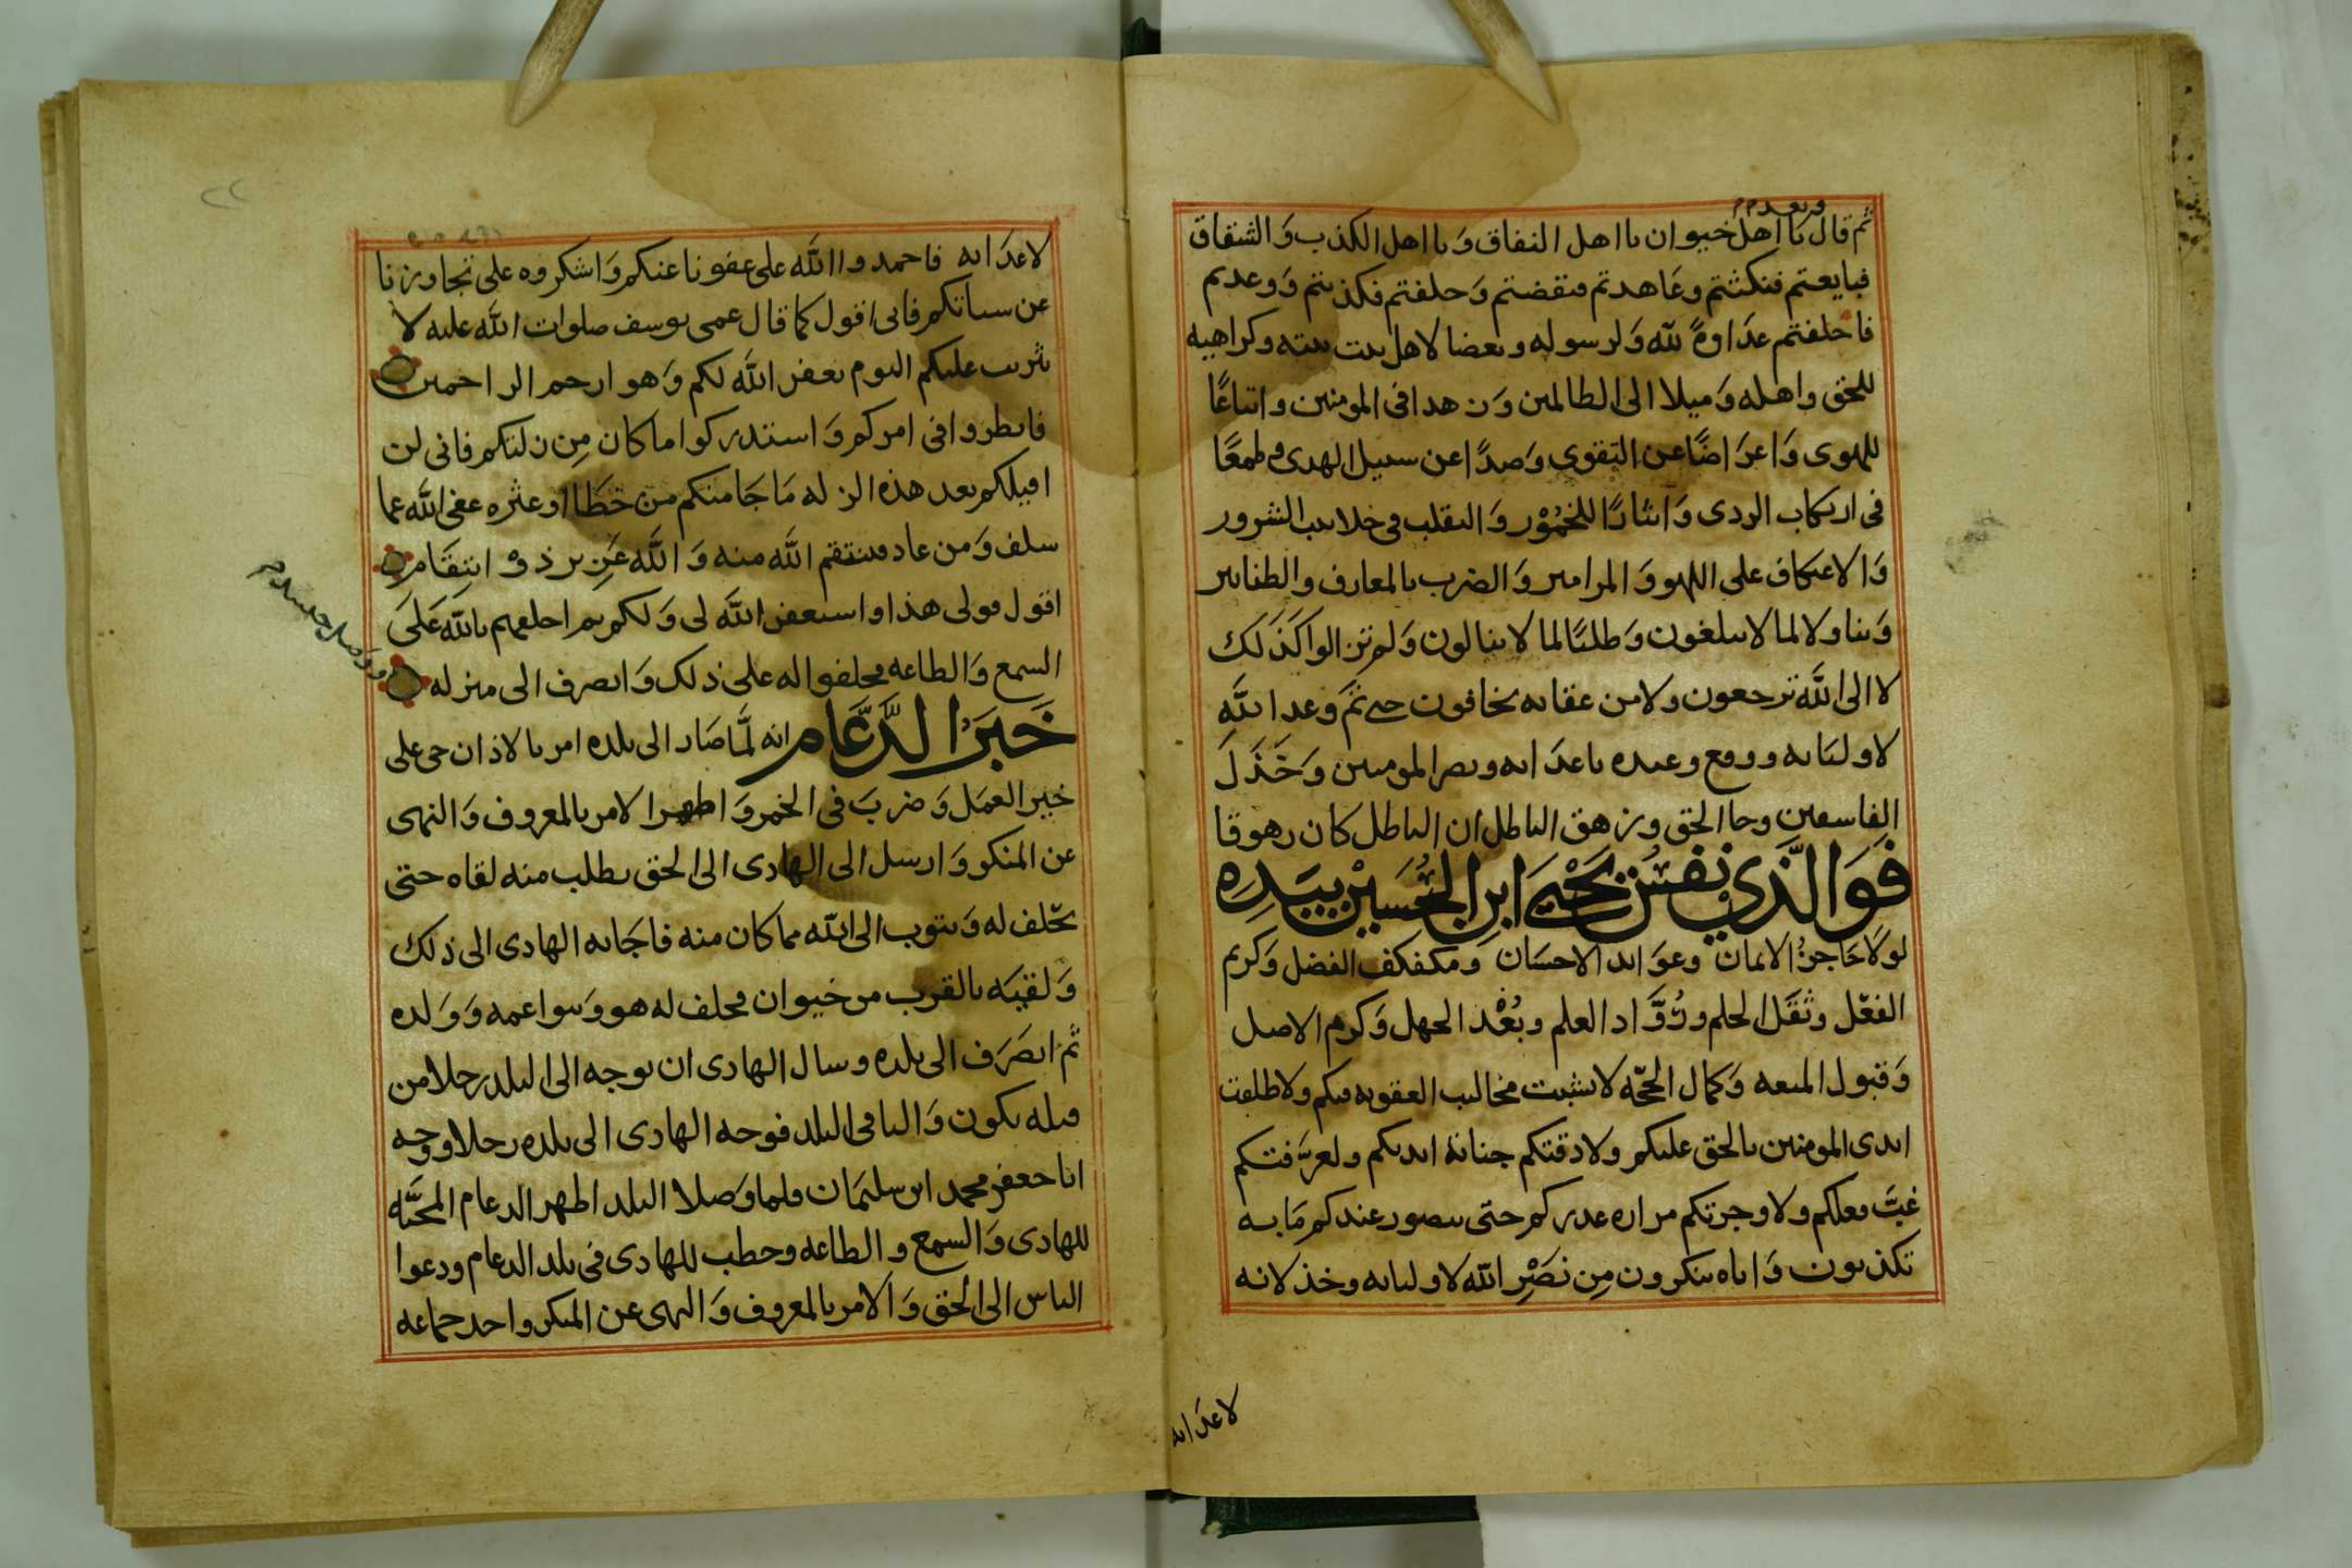 وبعدم
ثم قال يا اهل خيوان يا اهل النفاق وَيا اهل الكذب وَالشقاق
فبايعتم فنكثتم وعَاهدتم فنقضتم وَحلفتم فكذبتم وَوعدتم
فاخلفتم عدَاوةً لله وَلرسوله وبعضا لاهل بيت نبيه وكراهيه
للحق واهله وَميلا الى الظالمين وَزهدا فى المومنين واتباعًا
للهوى وَاعرَاضًا عن التقوى وَصدًا عن سبيل الهدى وطمعًا
فى ارتكاب الردى وَايثارًا للخمُوْر وَالتقلب فى خلابيب الشرور
وَالاعتكاف على اللهو وَالمزامير وَالضرب بالمعازف والطنابير
وَتناولا لما لا تبلغون وَطلبًا لما لا تنالون وَلم تزالوا كَذَلك
لا الى اللَّه ترجعون ولا من عقابه تخافون حتى تم وَعد اللَّه
لاوليَايه ووقع وعيده باعدَايه ونصر المومنين وَخَذَلَ
الفاسقين وجا الحق وزهق الباطل ان الباطل كان زهوقا
فَوَالَّذِي نفسُ يَحْيَى ابنِ الحُسَيْن بِيَدِه
لولاحَاجزُ الايمان وعوَايد الاحسَان وَمكفكف الفضل وَكريم
الفعْل وثقَل الحلم وذُوَّاد العلم وبُعْد الجهل وَكرم الاصل
وَقبول المعه وَكمال الحجّه لانشبت مخاليب العقوبه فيكم ولاطلقت
ايدى المومنين بالحق عليكم ولاذقتكم جناية ايديكم ولعرَّفتكم
غبَّ فعلكم ولاوجرتكم مراره غدركم حتى يبصور عندكم مَا به
تكذبون وَاياه تنكرون مِن نصْرِ اللَّه لاوليايه وخذلانه
لاعدَايه
لاعدَايه فاحمدوا اللَّه على عفونا عنكم وَاشكروه على تجاوزنا
عن سياتكم فانى اقول كما قال عمى يوسف صلوات اللَّه عليه لا
تثريب عليكم اليوم يغفر اللَّه لكم وَهو ارحم الراحمين
فانظروا فى امركم وَاستدركوا ما كان مِن زلتكم فانى لن
اقيلكم بعد هذه الزله مَا جَا منكم من خَطَا او عثره عفى اللَّه عما
سلف وَمن عاد فينتقم اللَّه منه وَاللَّه عَزيز ذوْ انتِقَام
اقول قولى هذا واستغفر اللَّه لى وَلكم ثم احلفهم باللَّه عَلَى
السمع وَالطاعه فحلفوا له على ذلك وَانصرف الى منزله
خَبَرُ الدَّعَّام انه لَمَّا صَار الى بلده امر بالاذان حى على
خير العمَل وَضربَ فى الخمر وَاظهر الامر بالمعروف وَالنهى
عن المنكر وَارسل الى الهادى الى الحق يطلب منه لقاه حتى
يحَلف له وَيتوب الى اللَّه مما كان منه فاجَابه الهادى الى ذلك
وَلقيَه بالقرب من خيوان فحلف له هو وَبنوا عمه وَوَلده
ثم انصَرَف الى بلده وسال الهادى ان يوجه الى البلد رجلا من
قبله يكون وَاليا فى البلد فوجه الهادى الى بلده رجلا ووجه
ابا جعفر محمد ابن سليمَان فلما وَصلا البلد اظهر الدعام المحَبَّه
للهادى وَالسمع والطاعه وخطب للهادى فى بلد الدعام ودعوا
الناس الى الحق وَالامر بالمعروف وَالنهى عن المنكر واخذ جماعه